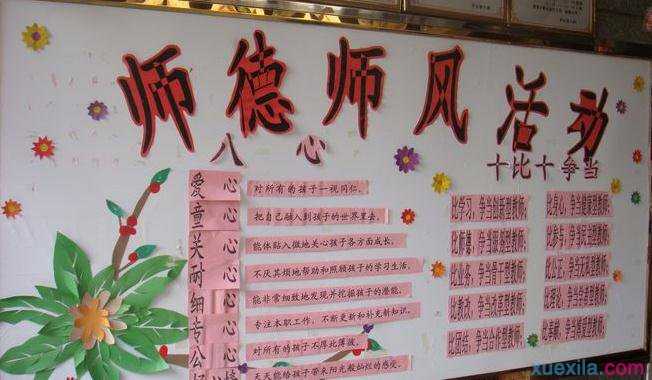 师德师风活动
八心
十比十争当
爱心 对所有的孩子一视同仁。
童心 把自己融入到孩子的世界里去。
关心 能体贴入微地关心孩子各方面成长。
耐心 不厌其烦地帮助和照顾孩子的学习生活。
细心 能非常细致地发现并挖掘孩子的潜能。
专心 专注本职工作，不断更新和补充新知识。
公心 对所有的孩子不厚此薄彼。
天天能给孩子带来阳光般灿烂的感受。
比学习，争当创新型教师；
比师德，争当
比业务，争当骨干型教师；
比教改，争当改革型教师；
比团结，争当合作型教师。
比身心，争当健康型教师；
比参与，争当民主型教师；
比公正，争当无私型教师；
比理论，争当
比奉献，争当
xuexila.com